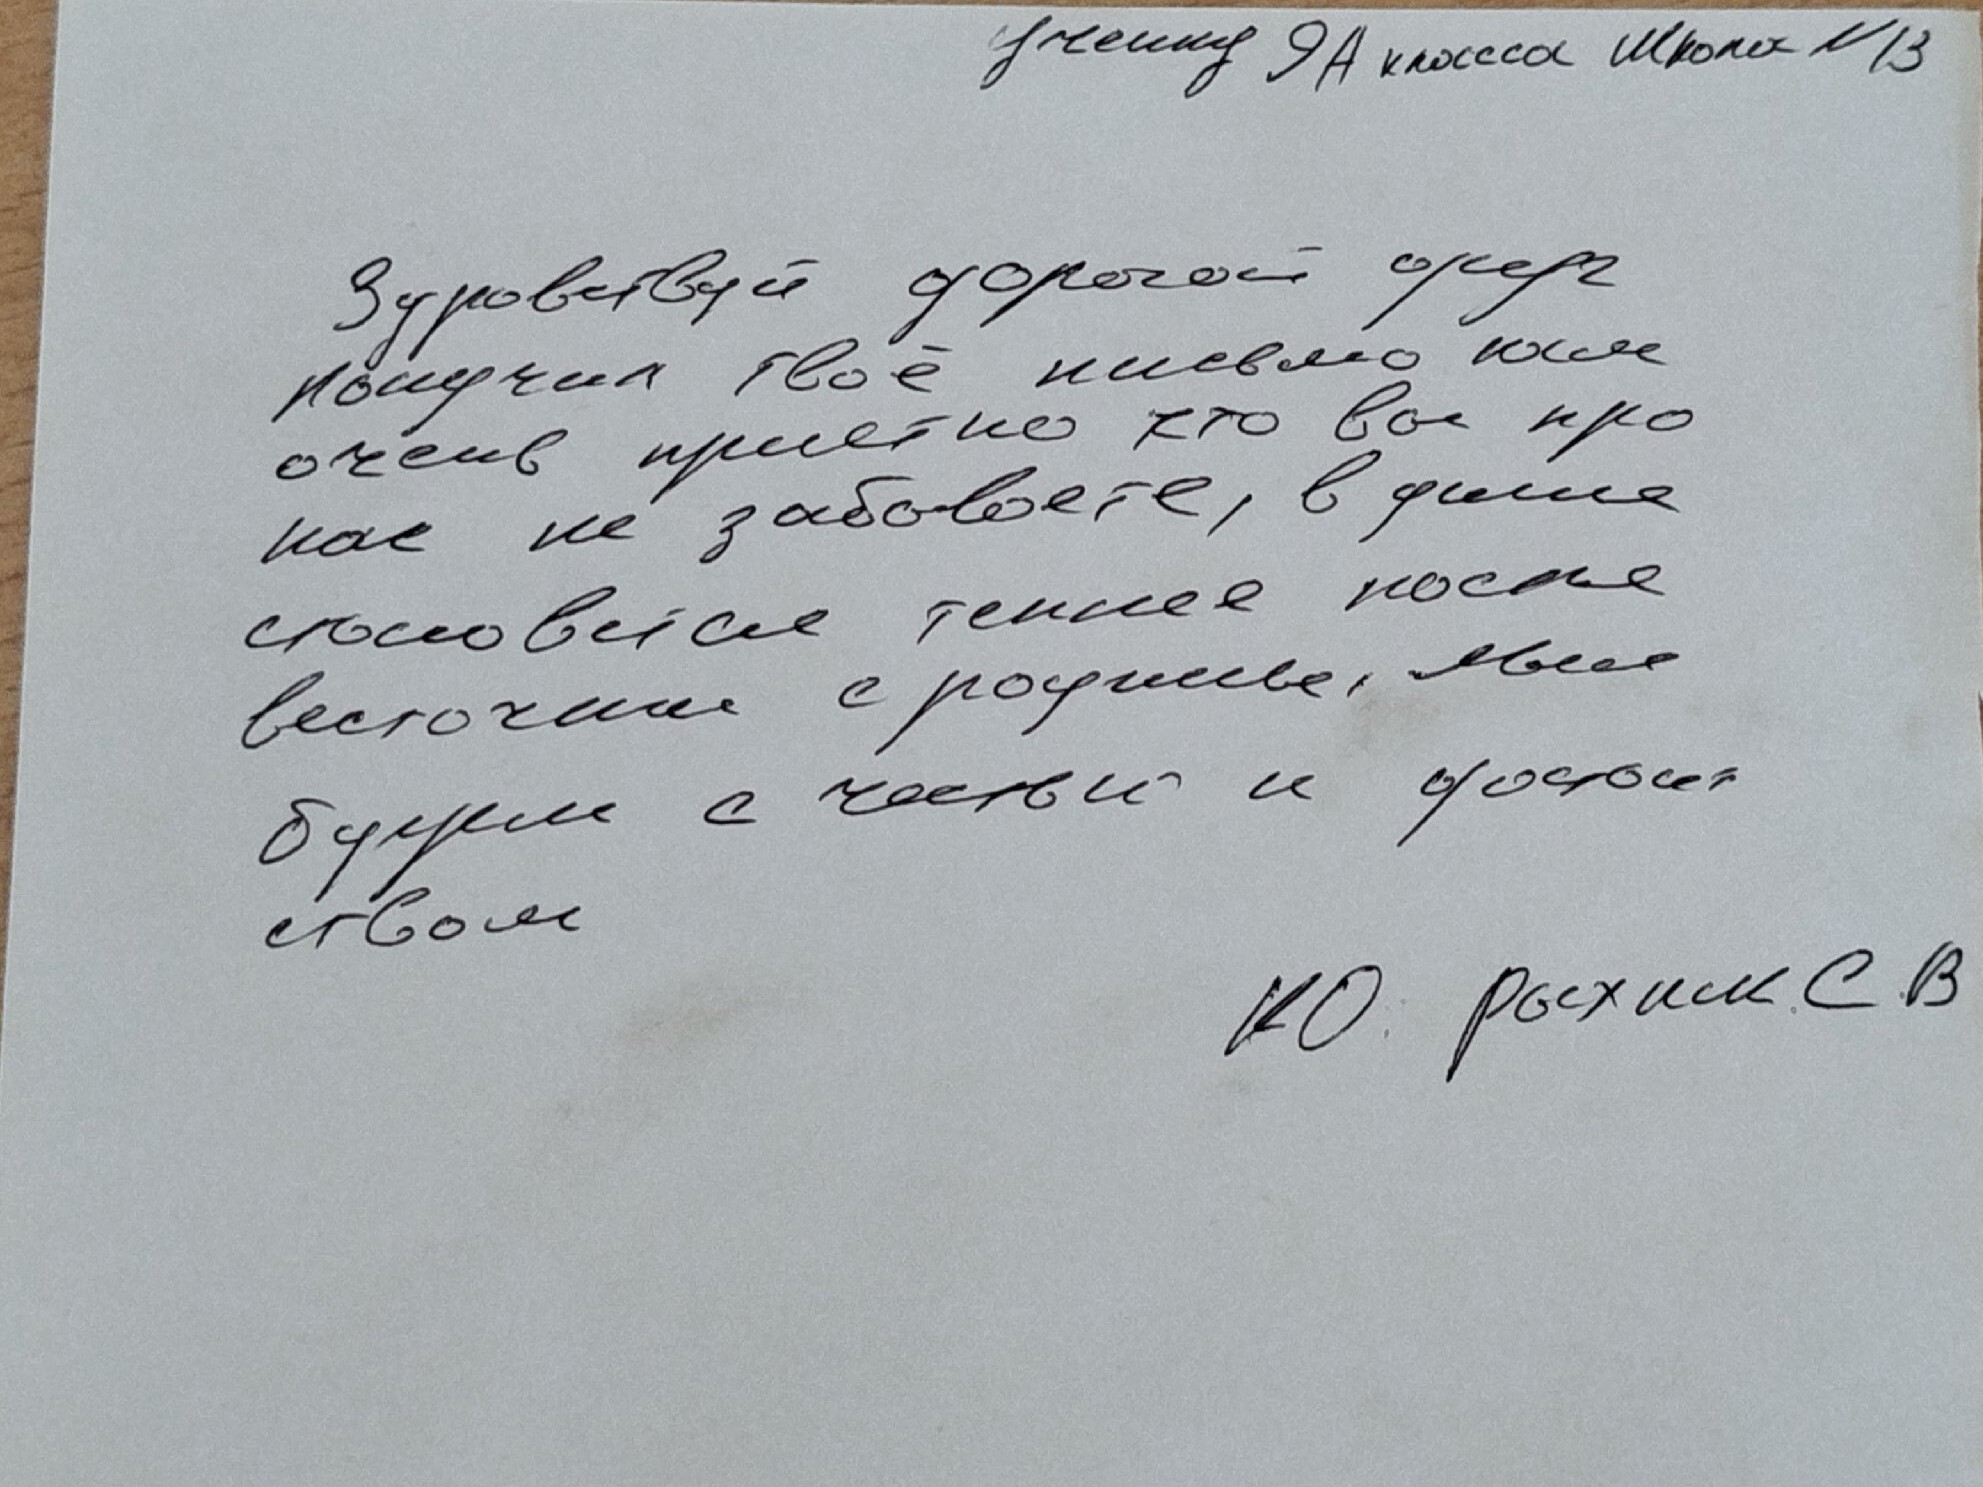 ученику 9А класса школа N 13
Здровствуй дорогой друг
получил твоё письмо нам
очень приетно что вы про
нас не забовоете, в душе
становится теплее после
весточки с родины, мы
будем с честью и достоит
ством
КО. Рыхлик. С. В